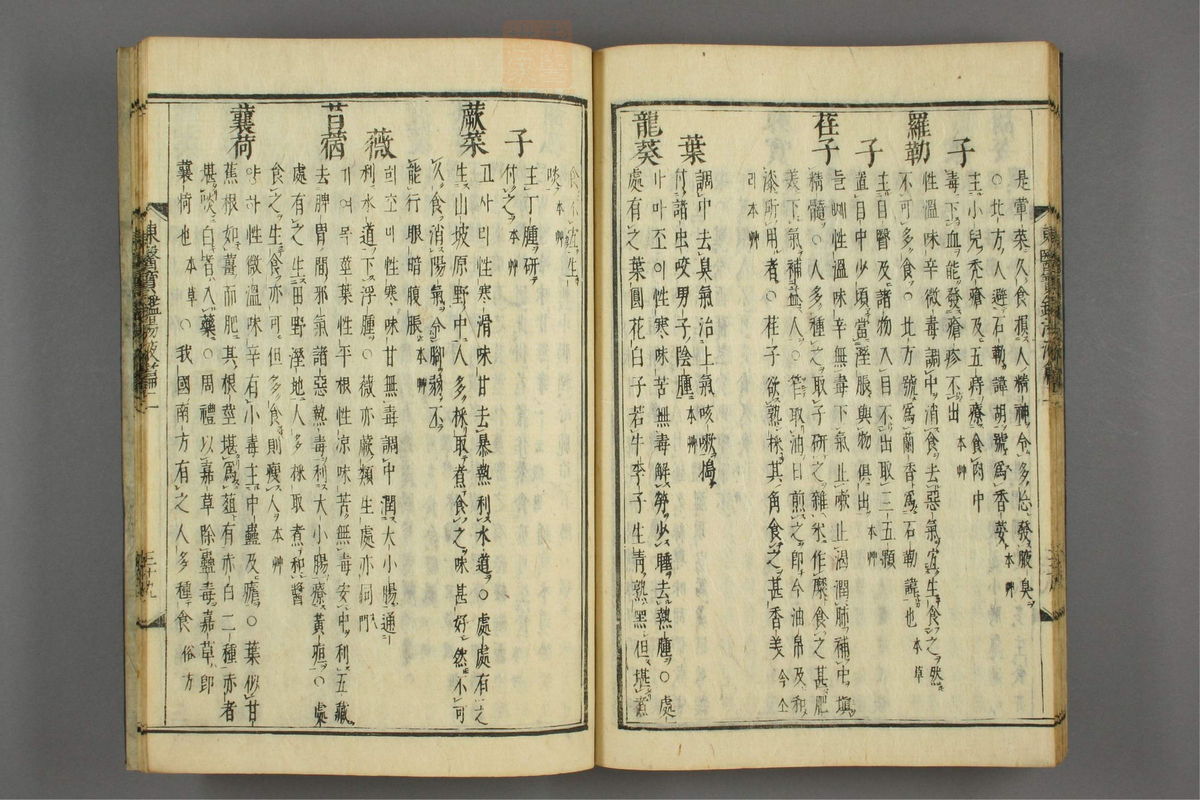 是葷菜久食損人精神令多忘發腋臭 本艸
○北方人避石勒諱胡號爲香荽 本艸
子
主小兒禿瘡及五痔瘵食肉中
毒下血能發瘡疹不出 本艸
羅勒
性溫味辛微毒調中消食去惡氣宜生食之然
不可多食○北方號爲蘭香爲石勒諱也 本草
子
主目瞖及諸物入目不出取三五顆
置目中少頃當溼脹與物俱出 本艸
荏子
性溫味辛無毒下氣止嗽止渴潤肺補中塡
精髓○人多種之取子硏之雜米作糜食之甚肥
美下氣補益人○笮取油日煎之卽今油帛及和
漆所用者○荏子欲熟採其角食之甚香美
本艸
葉
調中去臭氣治上氣咳嗽搗
付諸虫咬男子陰腫 本艸
龍葵
가마조이性寒味苦無毒解勞少睡去熱腫○處
處有之葉圓花白子若牛李子生靑熟黑但堪煮
食不宜生
啖 本艸
子
主丁腫硏
付之 本艸
蕨菜
고사리性寒滑味甘去暴熱利水道○處處有之
生山坡原野中人多採取煮食之味甚好然不可
久食消陽氣令脚弱不
能行眼暗腹脹 本艸
薇
회초미性寒味甘無毒調中潤大小腸通
利水道下浮腫○薇亦蕨類生處亦同
苜蓿
거여목莖葉性平根性凉味苦無毒安中利五藏
去脾胃間邪氣諸惡熱毒利大小腸療黃疸○處
處有之生田野溼地人多採取煮和醬
食之生食亦可但多食則瘦人 本艸
蘘荷
양하性微溫味辛有小毒主中蠱及瘧○葉似甘
蕉根如薑而肥其根莖堪爲葅有赤白二種赤者
堪啖白者入藥○周禮以嘉草除蠱毒嘉草卽
蘘荷也 本草○我國南方有之人多種食 俗方
東醫寶鑑湯液篇
三十九